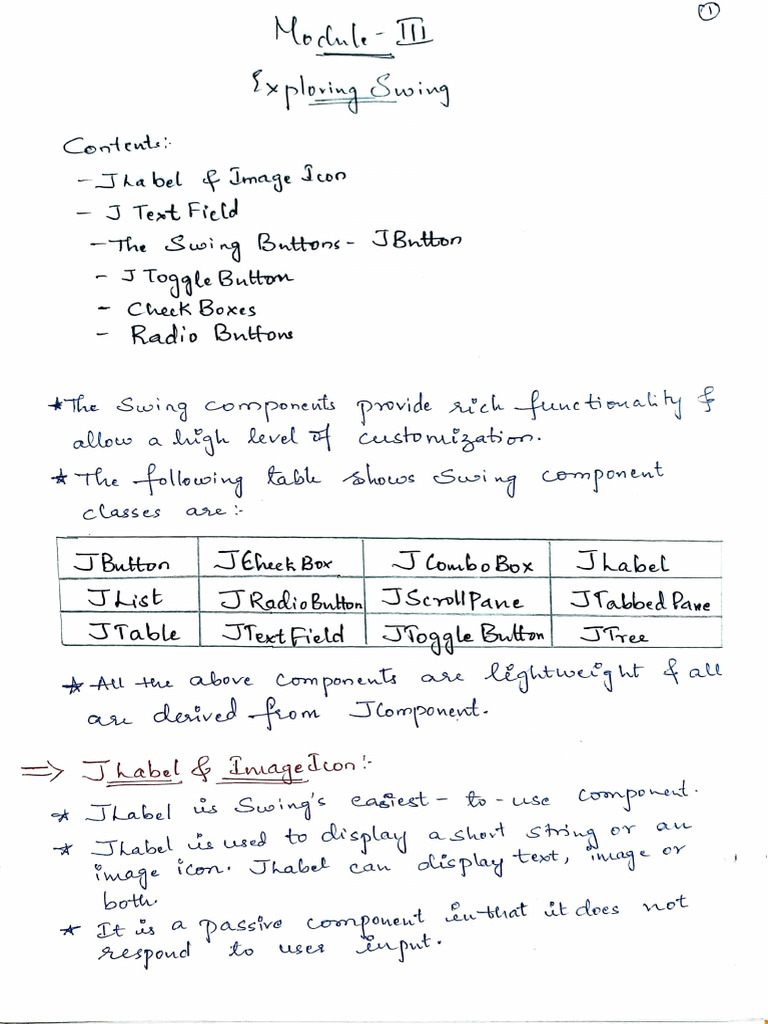 1
Module - III
Exploring Swing
Contents:-
- JLabel & Image Icon
- J Text Field
- The Swing Buttons - JButton
- J Toggle Button
- Check Boxes
- Radio Buttons
* The Swing components provide rich functionality &
allow a high level of customization.
* The following table shows Swing component
classes are :-
JButton JCheckBox JComboBox JLabel
JList JRadioButton JScrollPane JTabbedPane
JTable JTextField JToggleButton JTree
* All the above components are lightweight & all
are derived from JComponent.
=> JLabel & ImageIcon :-
* JLabel is Swing's easiest - to - use component.
* JLabel is used to display a short string or an
image icon. JLabel can display text, image or
both.
* It is a passive component in that it does not
respond to user input.